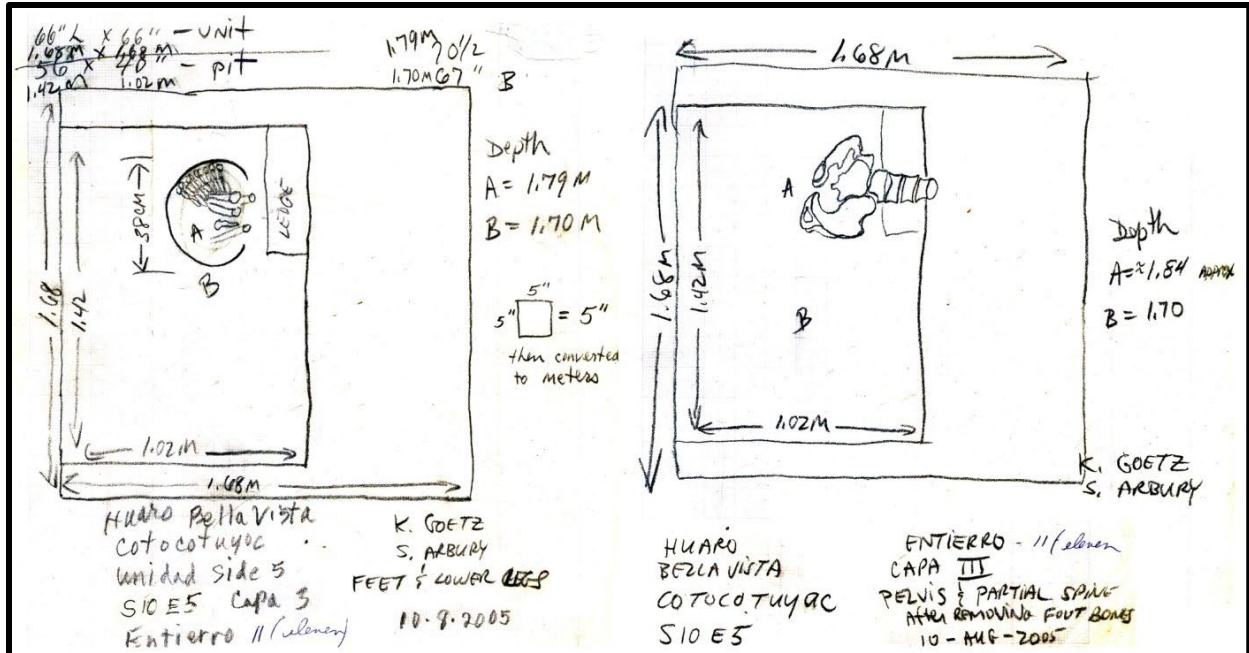 66" L x 66" - UNIT
1.68M x 1.68M
56 x 40" - pit
1.42M 1.02M
1.79M 70 1/2
1.70M 67" B
38CM
A
B
LEDGE
1.68
1.42
1.02M
1.68M
Depth
A = 1.79 M
B = 1.70 M
5"
5" = 5"
then converted
to meters
Huaro Bella Vista
Cotocotuyoc
Unidad Side 5
S10 E5 Capa 3
Entierro 11 (eleven)
K. GOETZ
S. ARBURY
FEET & LOWER LEGS
10.8.2005
1.68M
A
B
1.68M
1.42M
1.02M
Depth
A = ≈1.84 APPROX
B = 1.70
K. GOETZ
S. ARBURY
HUARO
BELLA VISTA
COTOCOTUYOC
S10 E5
ENTIERRO - 11 (eleven
CAPA III
PELVIS & PARTIAL SPINE
AFTER REMOVING FOOT BONES
10 - AUG - 2005